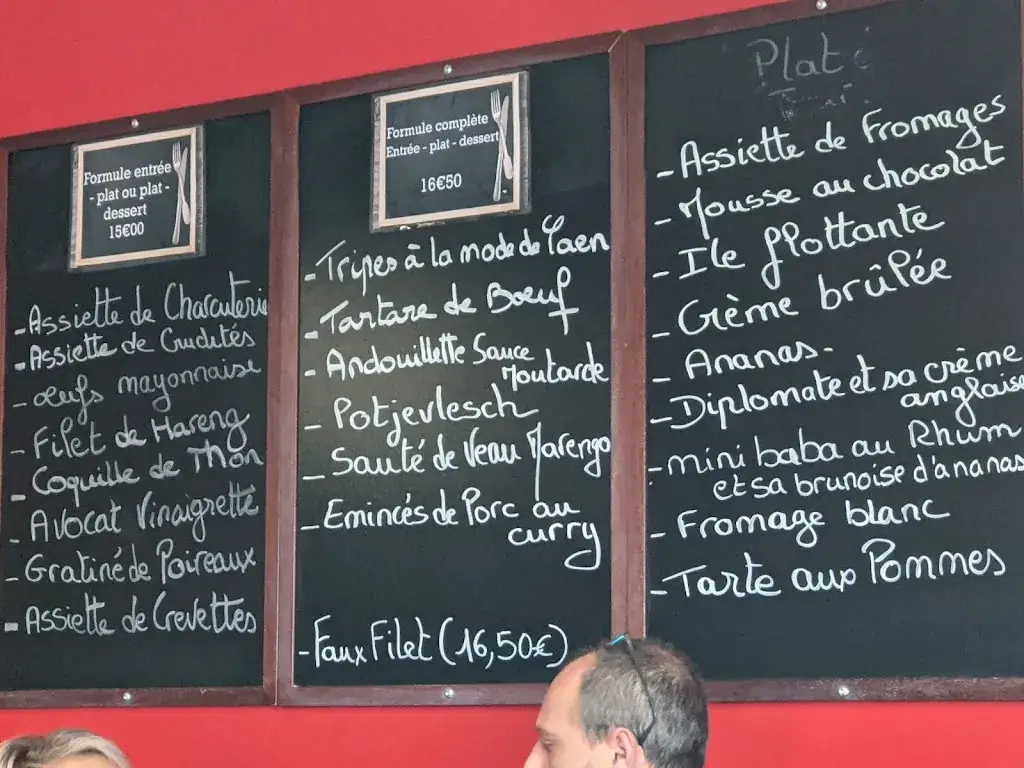 Formule entrée
- plat ou plat -
dessert
15€00
- Assiette de Charcuterie
- Assiette de Crudités
- œufs mayonnaise
- Filet de Hareng
- Coquille de Thon
- Avocat Vinaigrette
- Gratiné de Poireaux
- Assiette de Crevettes
Formule complète
Entrée - plat - dessert
16€50
- Tripes à la mode de Caen
- Tartare de Bœuf
- Andouillette Sauce
Moutarde
- Potjevlesch
- Sauté de Veau Marengo
- Emincés de Porc au
curry
- Faux Filet (16,50€)
Plat
- Assiette de Fromages
- Mousse au chocolat
- Ile flottante
- Crème brûlée
- Ananas.
- Diplomate et sa crème
anglaise
- mini baba au Rhum
et sa brunoise d'ananas
- Fromage blanc
- Tarte aux Pommes